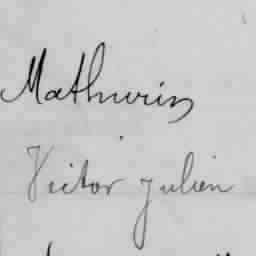 Mathurin
Victor julien